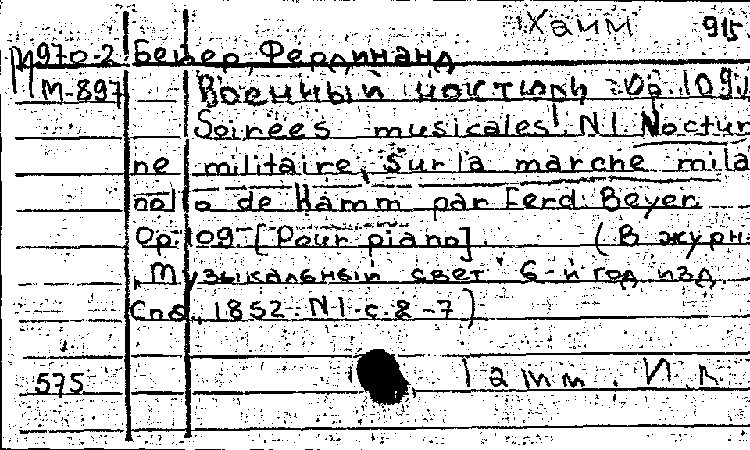 Хаим 915
М970-2 Бейер, Фердинанд
М-897 Военный ноктюрн. Op. 109.
Soirees musicales. N1. Noctur
ne militaire, sur la marche mila
nollo de Hamm par Ferd. Beyer.
Op. 109 [Pour piano]. (В журн.
"Музыкальный свет" 6-й год изд.
Спб., 1852. N1. с. 2-7)
575